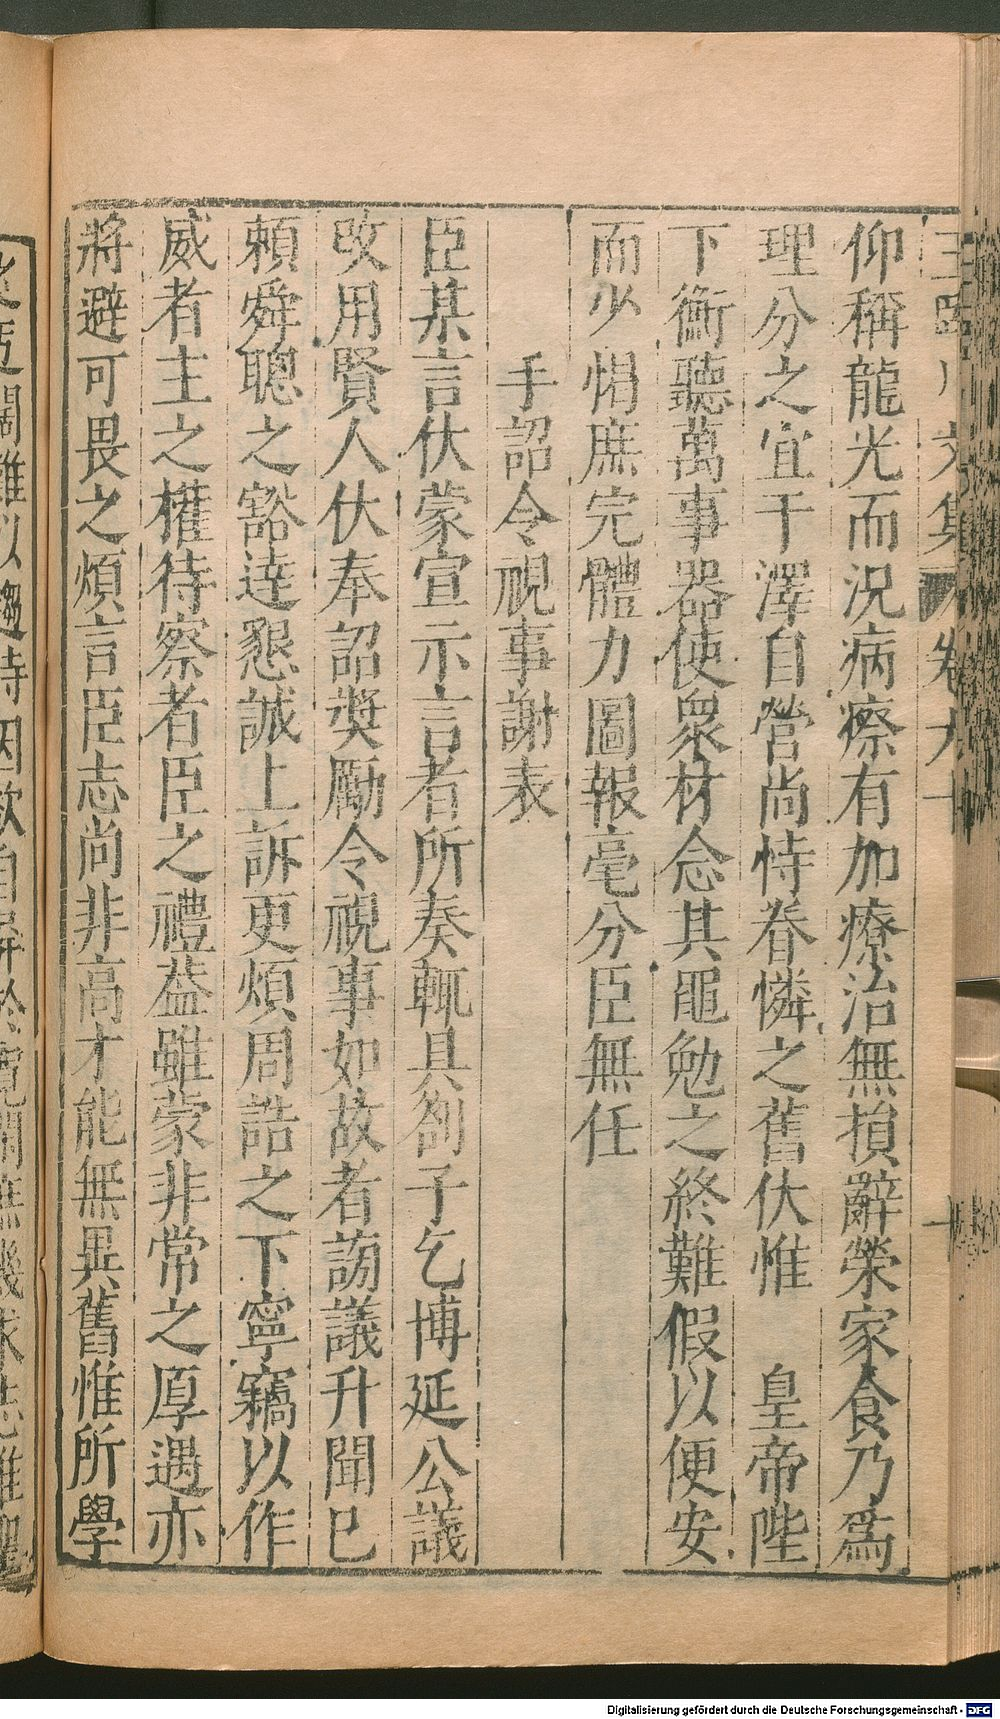 王臨川文集 卷九十 十
仰稱龍光而況病瘵有加療治無損辭榮家食乃爲
理分之宜干澤自營尚恃眷憐之舊伏惟　皇帝陛
下衡聽萬事器使衆材念其黽勉之終難假以便安
而少惰庶完體力圖報毫分臣無任
手詔令視事謝表
臣某言伏蒙宣示言者所奏輒具劄子乞博延公議
改用賢人伏奉詔獎勵令視事如故者謗議升聞已
賴舜聰之豁達懇誠上訴更煩周誥之下寧竊以作
威者主之權待察者臣之禮葢雖蒙非常之厚遇亦
將避可畏之煩言臣志尚非高才能無異舊惟所學
之迂闊難以趨時因欲自屏於寬閒庶幾求志惟聖
Digitalisierung gefördert durch die Deutsche Forschungsgemeinschaft - DFG